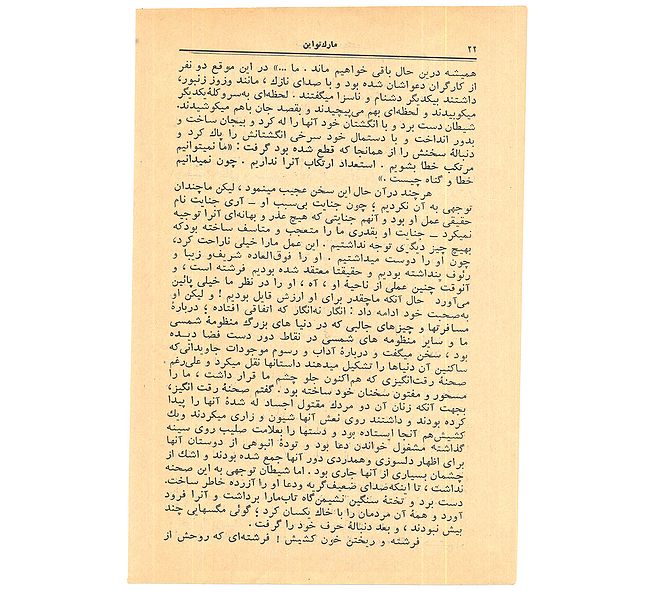 ۲۲
مارك تواین
همیشه درین حال باقی خواهیم ماند . ما ...» در این موقع دو نفر
از کارگران دعواشان شده بود و با صدای نازك ، مانند وزوز زنبور،
داشتند بیکدیگر دشنام و ناسزا میگفتند . لحظه‌ای به‌سروکلهٔ‌یکدیگر
میکوبیدند و لحظه‌ای بهم می‌پیچیدند و بقصد جان باهم میکوشیدند.
شیطان دست برد و با انگشتان خود آنها را له کرد و بیجان ساخت و
بدور انداخت و با دستمال خود سرخی انگشتانش را پاك کرد و
دنبالهٔ سخنش را از همانجا که قطع شده بود گرفت : «ما نمیتوانیم
مرتکب خطا بشویم . استعداد ارتکاب آنرا نداریم . چون نمیدانیم
خطا و گناه چیست .»
هرچند درآن حال این سخن عجیب مینمود ، لیکن ماچندان
توجهی به آن نکردیم ؛ چون جنایت بی‌سبب او ــ آری جنایت نام
حقیقی عمل او بود و آنهم جنایتی که هیچ عذر و بهانه‌ای آنرا توجیه
نمیکرد ــ جنایت او بقدری ما را متعجب و متاسف ساخته بودکه
بهیچ چیز دیگری توجه نداشتیم . این عمل مارا خیلی ناراحت کرد،
چون او را دوست میداشتیم . او را فوق‌العاده شریف‌و زیبا و
رئوف پنداشته بودیم و حقیقتا معتقد شده بودیم فرشته است ، و
آنوقت چنین عملی از ناحیهٔ او ، آه ، او را در نظر ما خیلی پائین
می‌آورد حال آنکه ماچقدر برای او ارزش قایل بودیم ! و لیکن او
به‌صحبت خود ادامه داد : انگار نه‌انگار که اتفاقی افتاده ؛ دربارهٔ
مسافرتها و چیزهای جالبی که در دنیا های بزرگ منظومهٔ شمسی
ما و سایر منظومه های شمسی در نقاط دور دست فضا دیده
بود ، سخن میگفت و دربارهٔ آداب و رسوم موجودات جاویدانی‌که
ساکنین آن دنیاها را تشکیل میدهند داستانها نقل میکرد و علی‌رغم
صحنهٔ رقت‌انگیزی که هم‌اکنون جلو چشم ما قرار داشت ، ما را
مسحور و مفتون سخنان خود ساخته بود . گفتم صحنهٔ رقت انگیز،
بجهت آنکه زنان آن دو مردك مقتول اجساد له شدهٔ آنها را پیدا
کرده بودند و داشتند روی نعش آنها شیون و زاری میکردند ویك
کشیش‌هم آنجا ایستاده بود و دستها را بعلامت صلیب روی سینه
گذاشته مشغول خواندن دعا بود و تودهٔ انبوهی از دوستان آنها
برای اظهار دلسوزی وهمدردی دور آنها جمع شده بودند و اشك از
چشمان بسیاری از آنها جاری بود . اما شیطان توجهی به این صحنه
نداشت ، تا اینکه‌صدای ضعیف‌گریه ودعا او را آزرده خاطر ساخت.
دست برد و تختهٔ سنگین نشیمن‌گاه تاب‌مارا برداشت و آنرا فرود
آورد و همهٔ آن مردمان را با خاك یکسان کرد ؛ گوئی مگسهایی چند
بیش نبودند ، و بعد دنبالهٔ حرف خود را گرفت .
فرشته و ریختن خون کشیش ! فرشته‌ای که روحش از